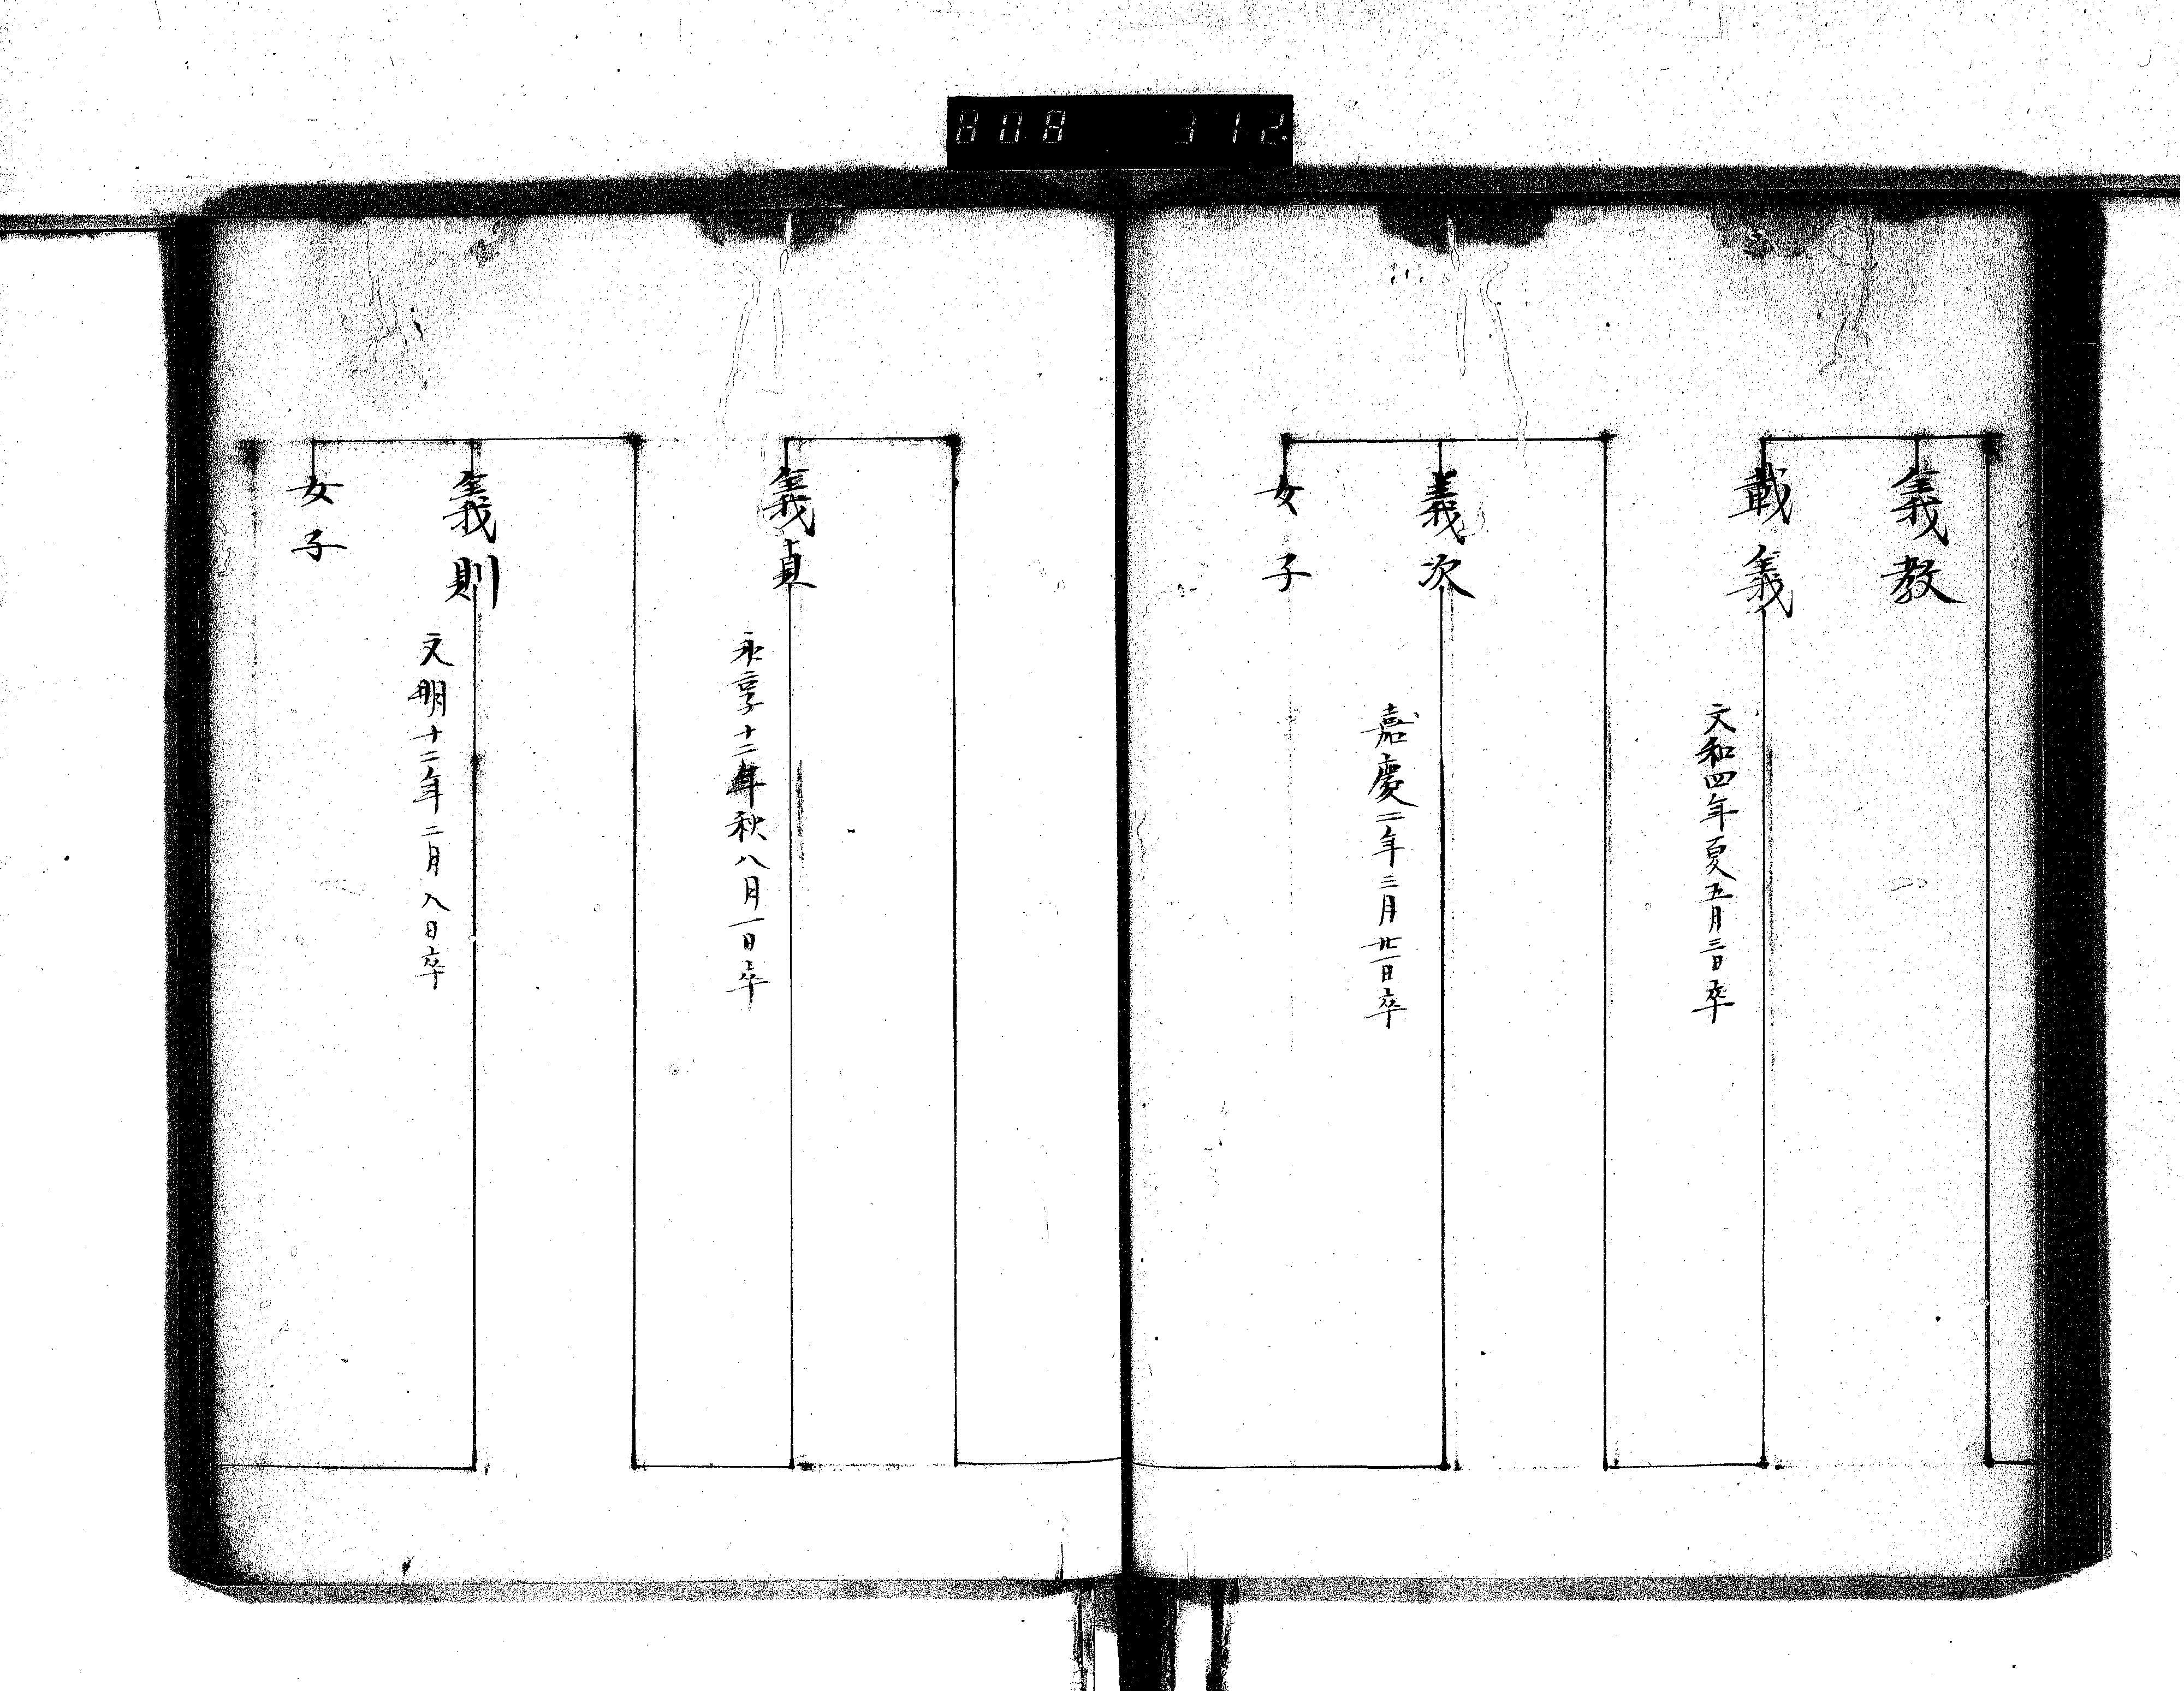 808 312
義教
載義
文和四年夏五月三日卒
義次
嘉慶二年三月廿一日卒
女子
義真
永享十二年秋八月一日卒
義則
文明十二年二月八日卒
女子